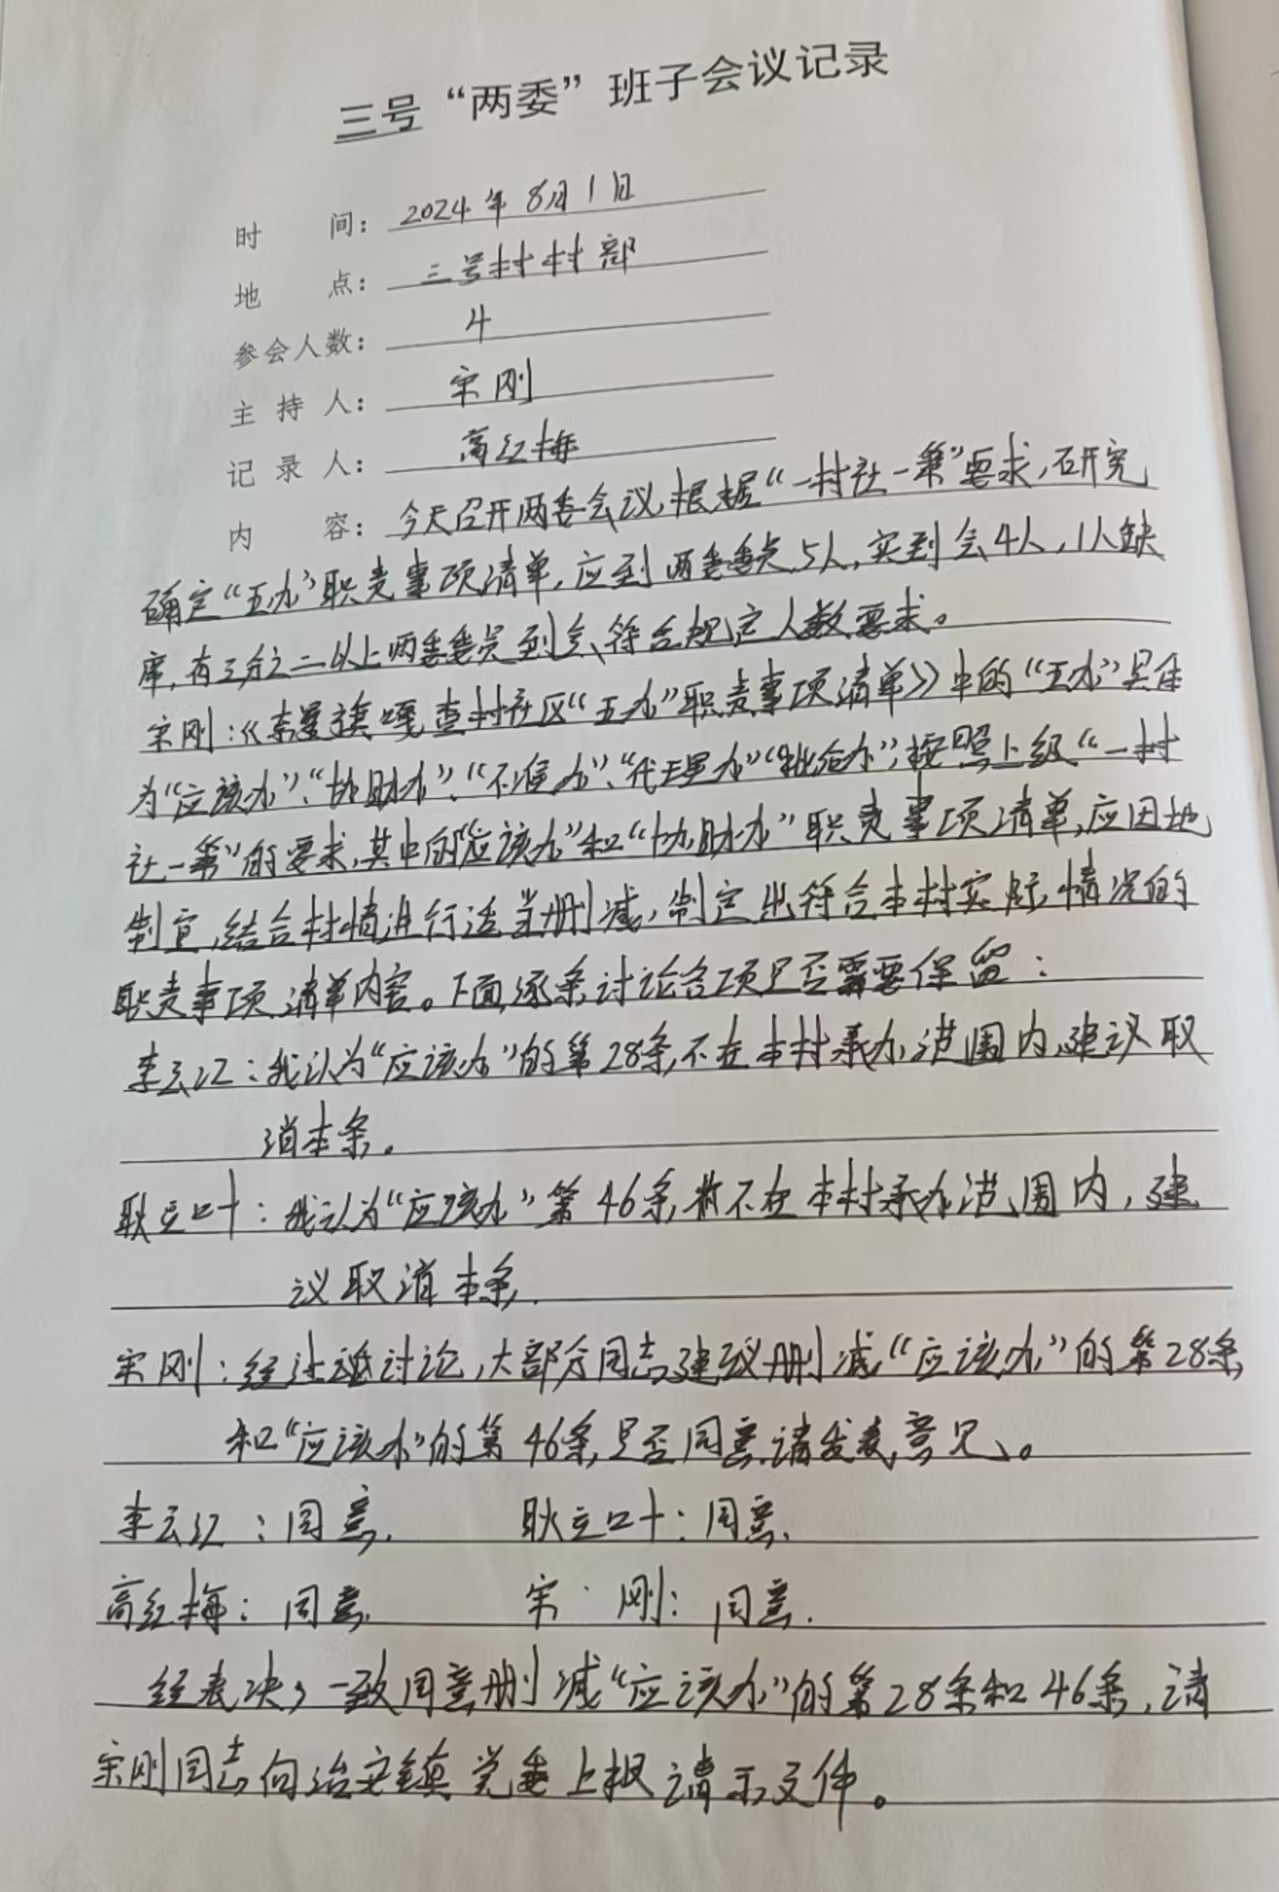 三号“两委”班子会议记录
时间：2024年8月1日
地点：三号村村部
参会人数：4
主持人：宋刚
记录人：高红梅
内容：今天召开两委会议，根据“一村社一策”要求，研究
确定“五办”职责事项清单，应到两委委员5人，实到会4人，1人缺
席，有三分之二以上两委委员到会，符合规定人数要求。
宋刚：《奈曼旗嘎查村社区“五办”职责事项清单》中的“五办”具体
为“应该办”、“协助办”、“不准办”、“代理办”“批给办”，按照上级“一村
社一策”的要求，其中的“应该办”和“协助办”职责事项清单，应因地
制宜，结合村情进行适当删减，制定出符合本村实际情况的
职责事项清单内容。下面，逐条讨论各项是否需要保留：
李云江：我认为“应该办”的第28条，不在本村承办范围内，建议取
消本条。
耿立叶：我认为“应该办”第46条，不在本村承办范围内，建
议取消本条。
宋刚：经过讨论，大部分同志建议删减“应该办”的第28条
和“应该办”的第46条，是否同意，请发表意见。
李云江：同意. 耿立叶：同意.
高红梅：同意. 宋刚：同意.
经表决，一致同意删减“应该办”的第28条和46条，请
宋刚同志向治安镇党委上报请示文件。